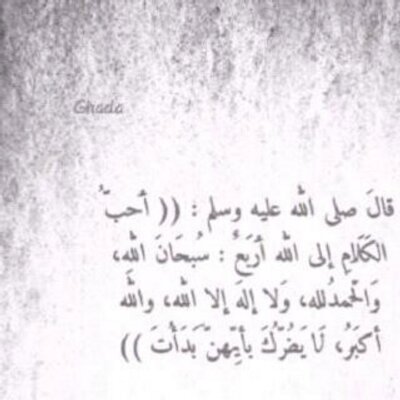 Ghada
قالَ صلى الله عليه وسلم : (( أحبّ
الكَلامِ إلى الله أربَعٌ : سُبحَانَ اللهِ،
وَالحمدُلله، وَلا إلهَ إلا الله، والله
أكبَرُ، لَا يَضُرّكَ بأيّهنّ بَدَأتَ ))